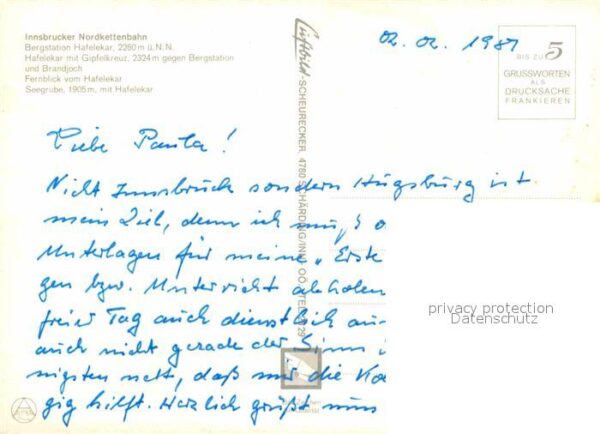 Innsbrucker Nordkettenbahn
Bergstation Hafelekar, 2260 m ü.N.N.
Hafelekar mit Gipfelkreuz, 2324 m gegen Bergstation
und Brandjoch
Fernblick vom Hafelekar
Seegrube, 1905 m, mit Hafelekar
Luftbild-SCHEURECKER, 4780 SCHÄRDING/INN
02.02.1981
BIS ZU 5
GRUSSWORTEN
ALS
DRUCKSACHE
FRANKIEREN
Liebe Paula!
Nicht Innsbruck sondern Augsburg ist
mein Ziel, denn ich muß
Unterlagen für meine „Erste
gen bzw. Unterricht abholen
freier Tag auch dienstlich
auch nicht gerade der Sinn
nigsten nett, daß mir die
gig hilft. Herzlich grüßt nun
privacy protection
Datenschutz